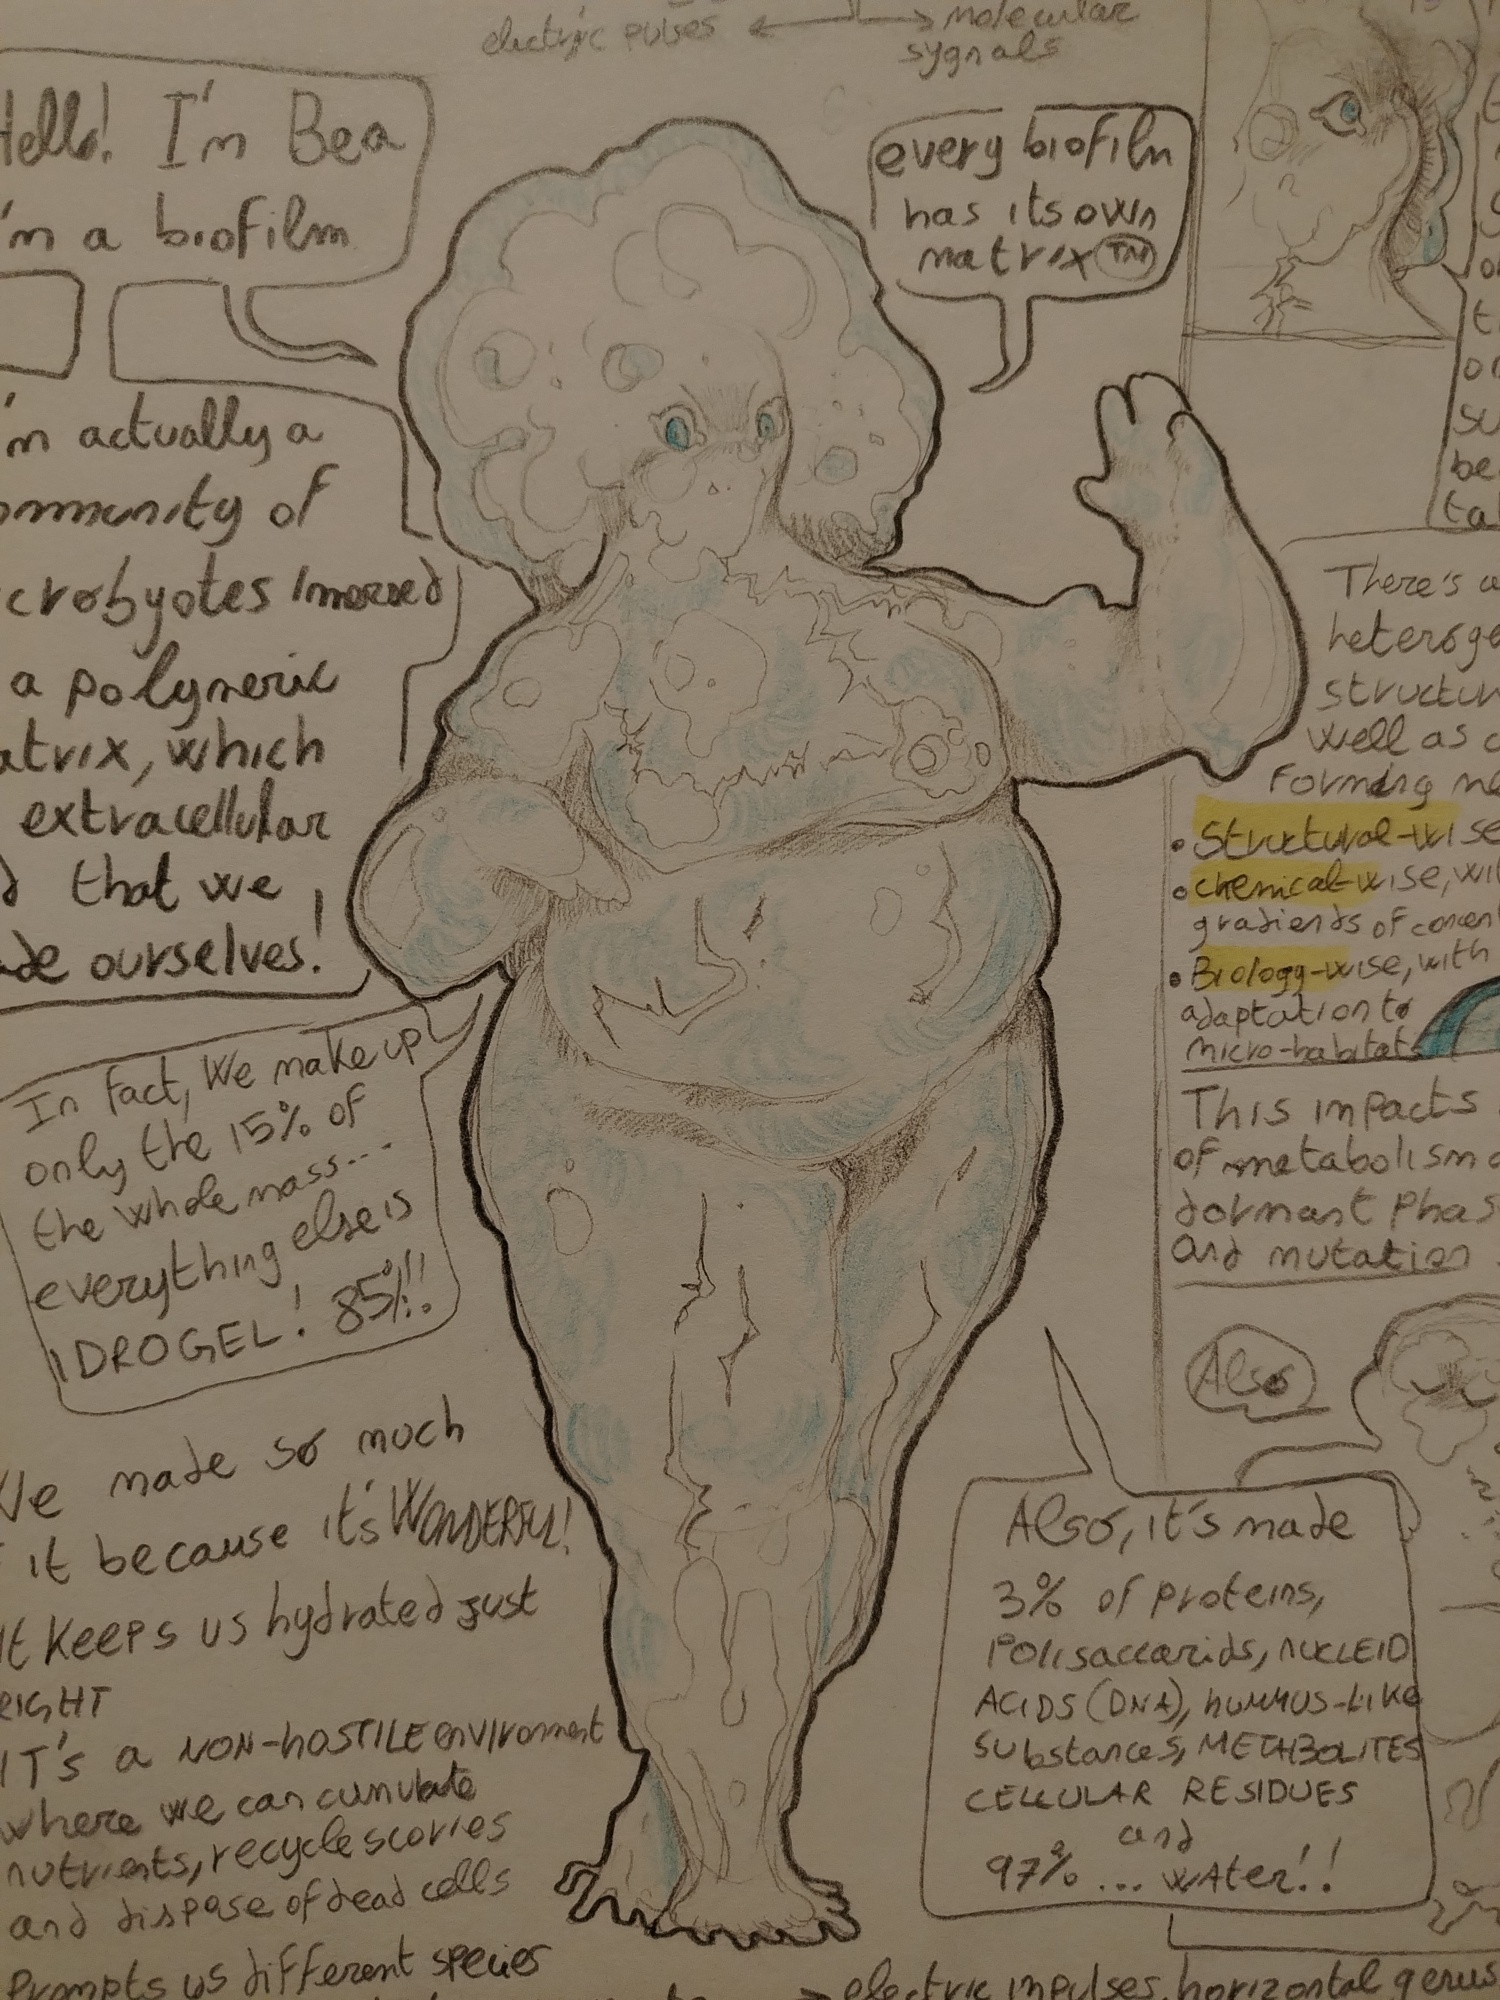 electric pulses
molecular
sygnals
Hello! I'm Bea
I'm a biofilm
every biofilm
has its own
matrix TM
I'm actually a
community of
crobyotes Immersed
a polymeric
matrix, which
extracellular
that we
ade ourselves!
In fact, We make up
only the 15% of
the whole mass...
everything else is
IDROGEL! 85%!!
We made so much
it because it's WONDERFUL!
It keeps us hydrated just
RIGHT
IT's a NON-hOSTILE environment
where we can cumulate
nutrients, recycle scories
and dispose of dead cells
Prompts us different species
on
su
be
ta
There's a
heteroge
structur
well as c
Forming ne
• Structural-wise
• chemical-wise, wi
gradients of concent
• Biology-wise, with
adaptation to
micro-habitats
This impacts
of metabolism
dormant phas
and mutation
Also
Also, it's made
3% of proteins,
Polisaccarids, NUCLEID
ACIDS (DNA), hUMMUS-LIKE
substances, METABOLITES
CELLULAR RESIDUES
and
97% ... wAter!!
electric impulses, horizontal genus